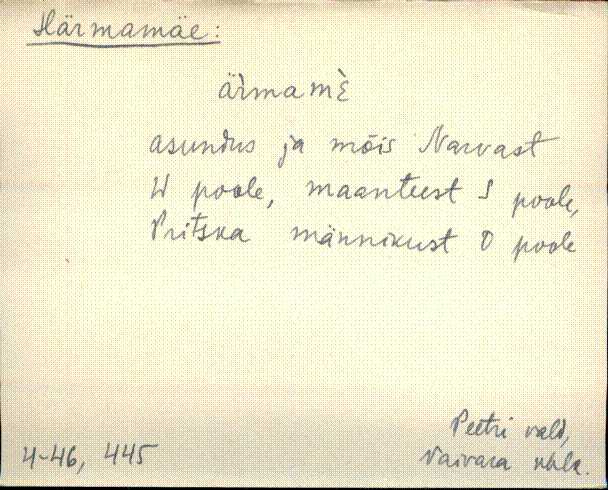 Härmamäe:
är̀mamὲ
asundus ja mõis Narvast
W poole, maanteest S poole,
Pritska männikust O poole
Peetri vald,
4-46, 445
Vaivara khlk.